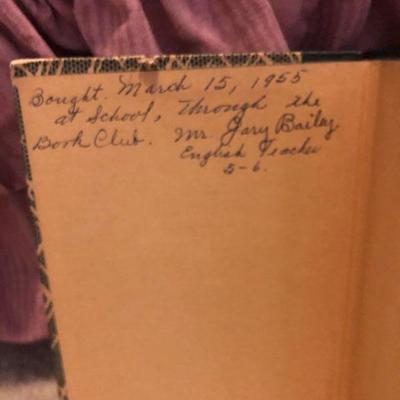 Bought March 15, 1955
at School, Through the
Book Club. Mr. Gary Bailey
English Teacher
5-6.